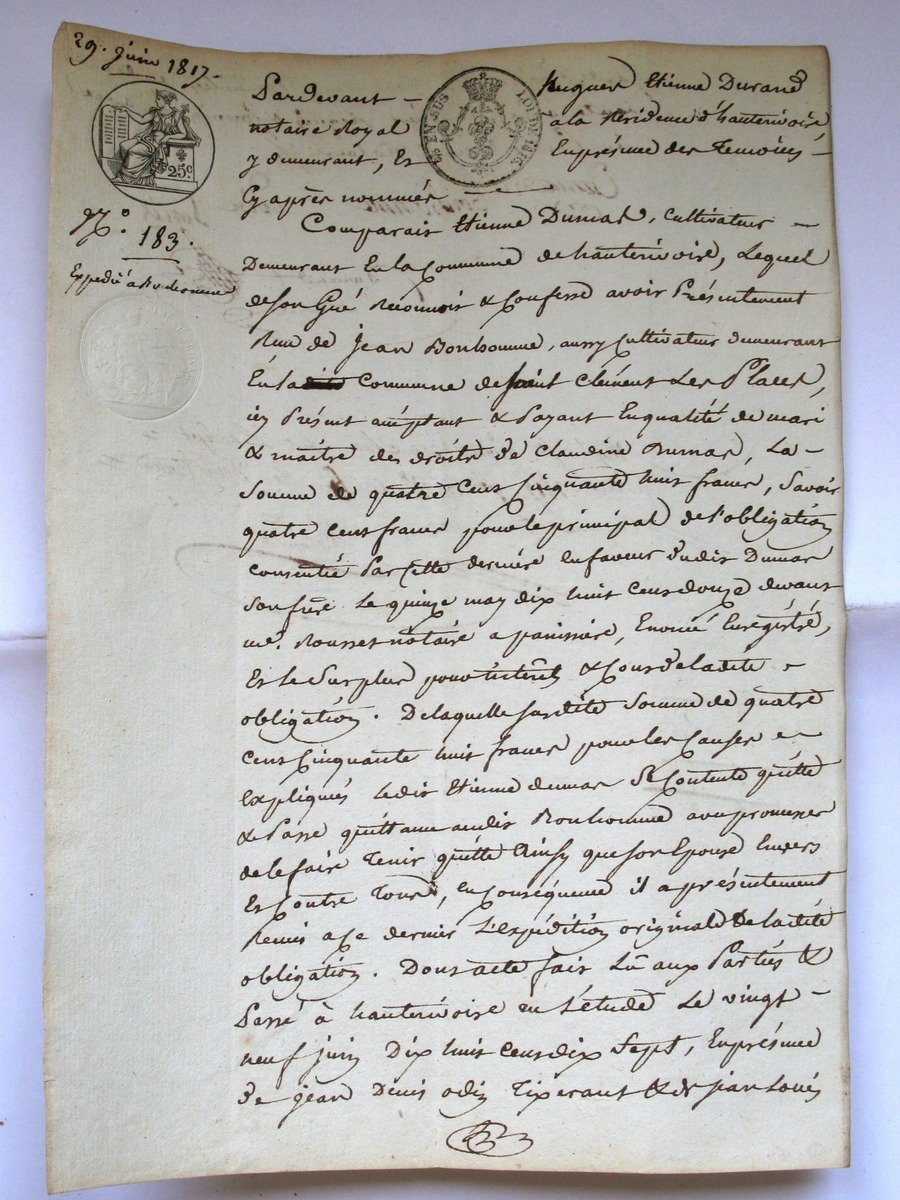 29. juin 1817.
25c.
EN SUS LOI DE 1816
N.o 183.
Expedié à Bonhomme
Pardevant - hugues Etienne Durand
notaire Royal à la Residence d'hauterivoire
y demeurant, Et Enprésence des Temoins -
Cy après nommés
Comparait Etienne Dumas, cultivateur -
Demeurant En la Commune de hauterivoire, Lequel
de son Gré Reconnoit & Confesse avoir Présentement
Reçu de jean Bonhomme, aussy Cultivateur demeurant
En la Commune de saint Clément Les Places,
icy Présent acceptant & Payant Enqualité de mari
& maitre des droits de Claudine Dumas, La -
Somme de quatre Cent Cinquante huit francs, Savoir
quatre cent francs pour le principal de l'obligation
consentie Par Cette derniére en faveur dudit Dumas
Son frère Le quinze may dix huit Cent douze devant
me. Rousset notaire a panissiére, Enregistré,
Et le Surplus pour intérêts & Cours de ladite
obligation. De laquelle susdite Somme de quatre
Cent Cinquante huit francs pour les Causes
Expliqués ledit Etienne dumas Se Contente quitte
& Passe quittance audit Bonhomme avec promesse
de le faire Tenir quitte Ainsy que son Epouse Envers
Et Contre Tous, En Conséquence il a présentement
Remis a Ce dernier L'expédition originale De ladite
obligation. Dont acte fait Lû aux Parties &
Passé à hauterivoire en l'étude Le vingt -
neuf juin Dix huit Cent dix Sept, Enprésence
de jean Denis odin Tixerant & de jean Louis